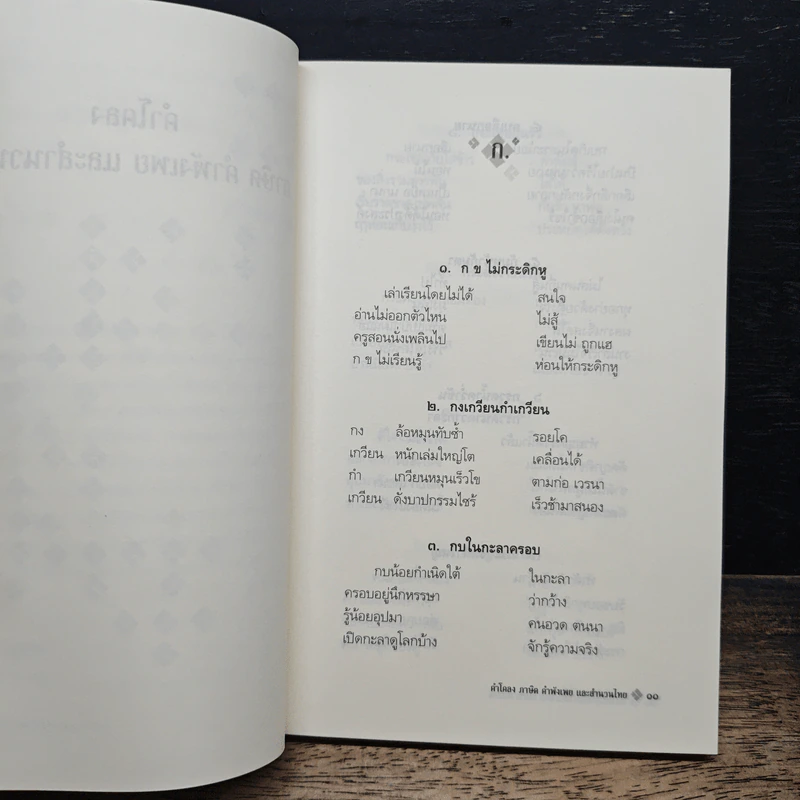 ก.
๑. ก ข ไม่กระดิกหู
เล่าเรียนโดยไม่ได้ สนใจ
อ่านไม่ออกตัวไหน ไม่สู้
ครูสอนนั่งเพลินไป เขียนไม่ ถูกแฮ
ก ข ไม่เรียนรู้ ห่อนให้กระดิกหู
๒. กงเกวียนกำเกวียน
กง ล้อหมุนทับซ้ำ รอยโค
เกวียน หนักเล่มใหญ่โต เคลื่อนได้
กำ เกวียนหมุนเร็วโข ตามก่อ เวรนา
เกวียน ดั่งบาปกรรมไซร้ เร็วช้ามาสนอง
๓. กบในกะลาครอบ
กบน้อยกำเนิดใต้ ในกะลา
ครอบอยู่นึกหรรษา ว่ากว้าง
รู้น้อยอุปมา คนอวด ตนนา
เปิดกะลาดูโลกบ้าง จักรู้ความจริง
คำโคลง ภาษิต คำพังเพย และสำนวนไทย ๑๑